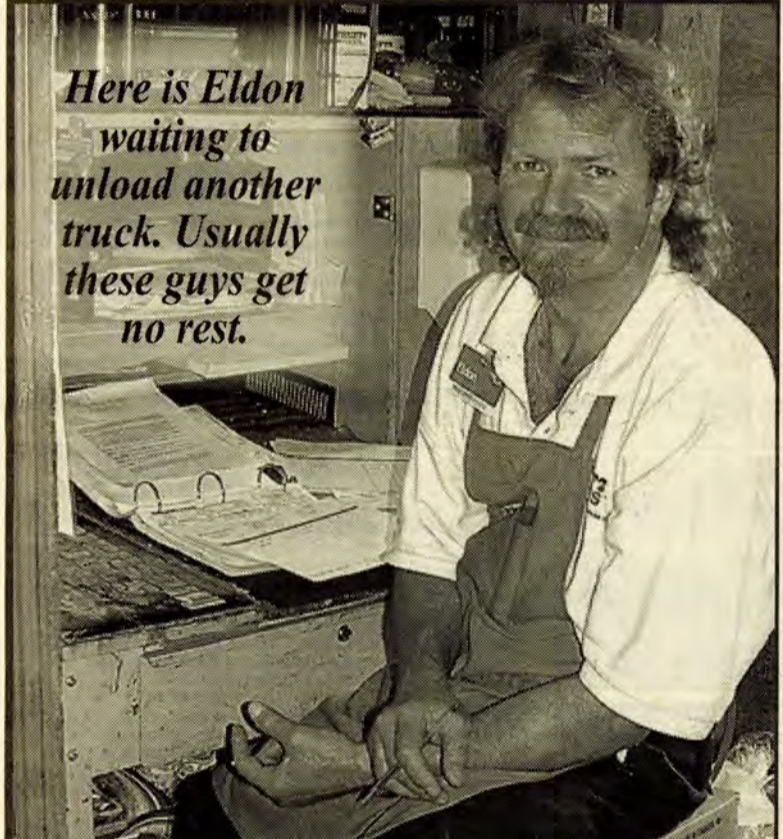 Here is Eldon
waiting to
unload another
truck. Usually
these guys get
no rest.
Eldon